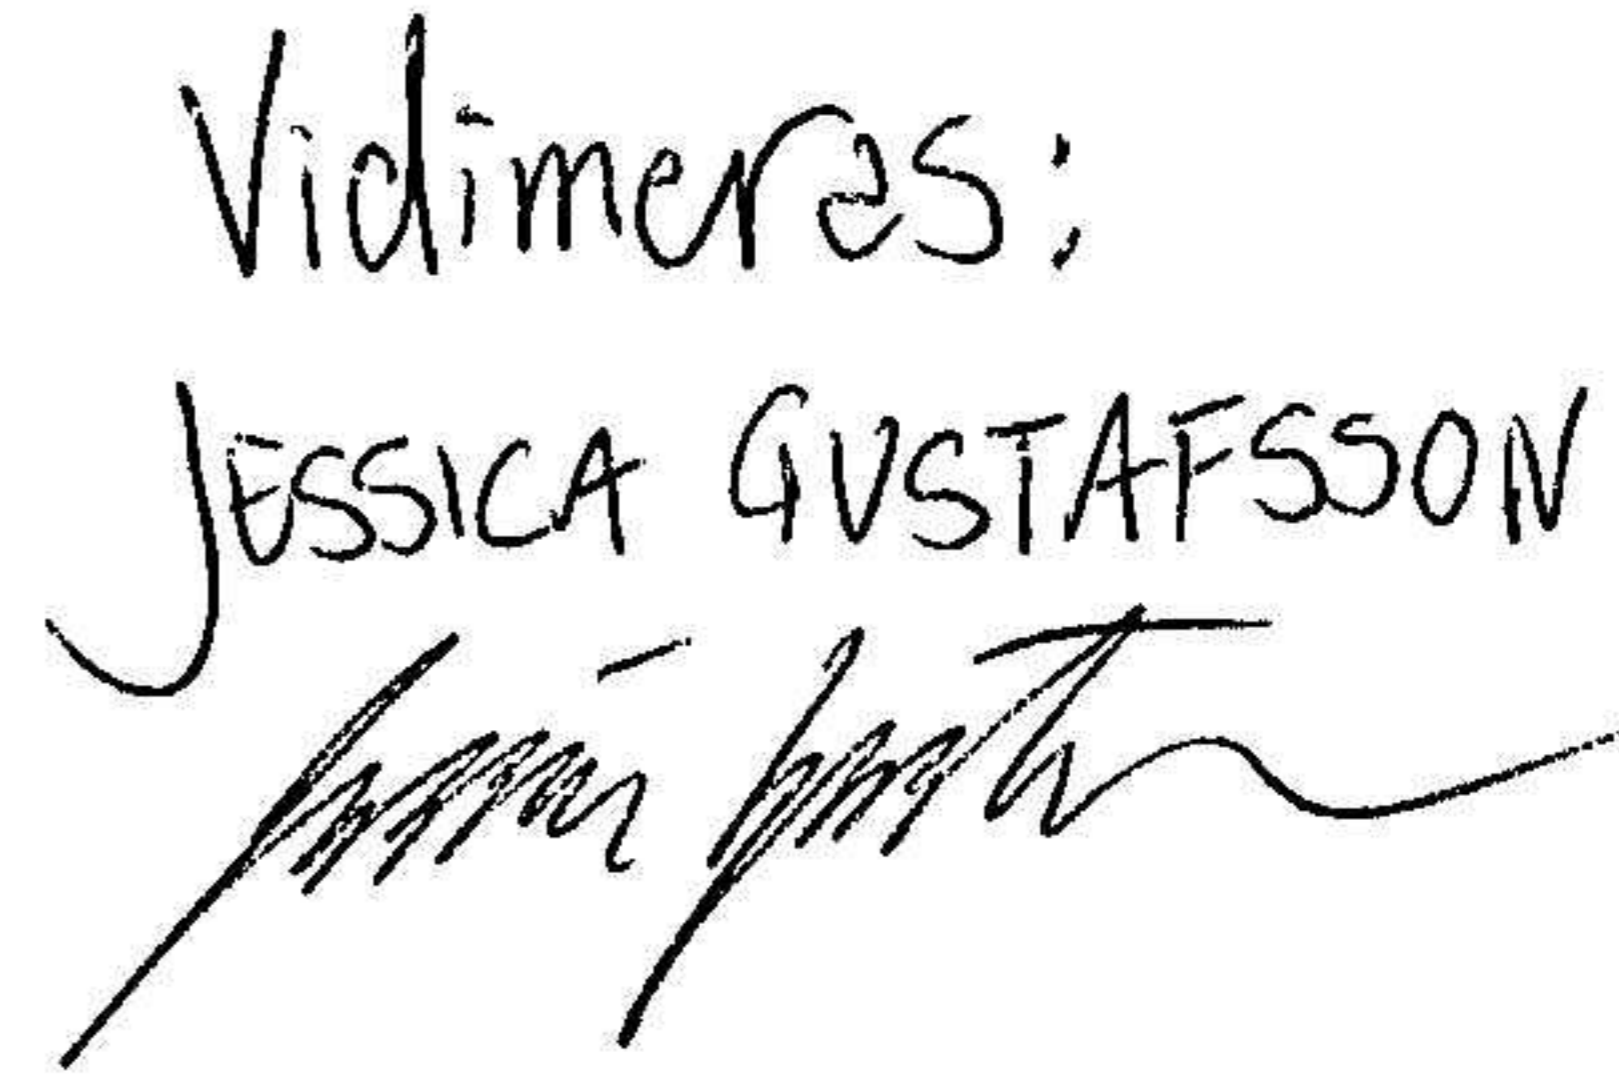 Vidimeras:
JESSICA GUSTAFSSON